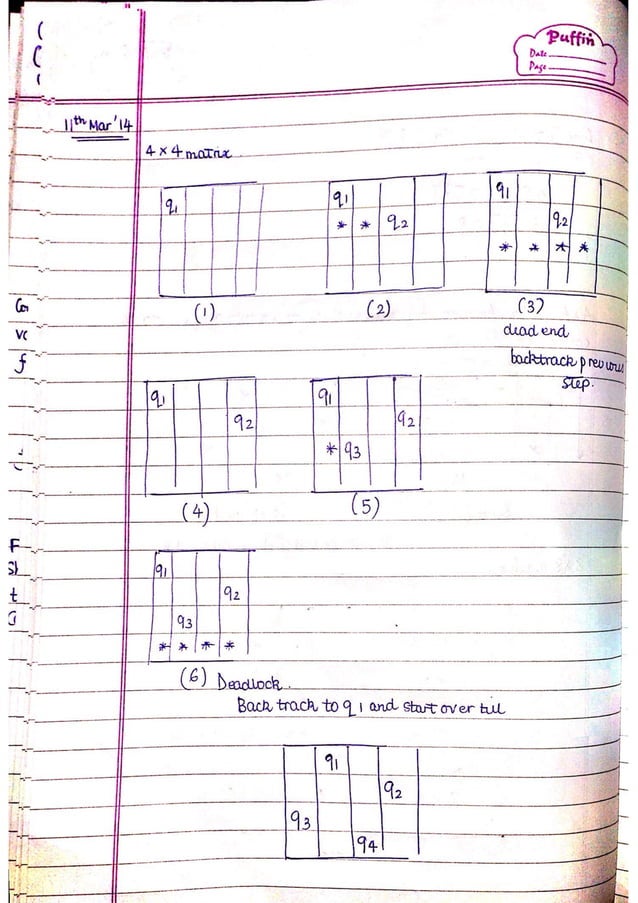 Puffin
Date
Page
11th Mar '14
4 × 4 matrix
q1
q1
* * q2
q1
q2
* * * *
(1)
(2)
(3)
dead end
backtrack previous
step.
q1
q2
q1
q2
* q3
(4)
(5)
q1
q2
q3
* * * *
(6) Deadlock.
Back track to q1 and start over till
q1
q2
q3
q4